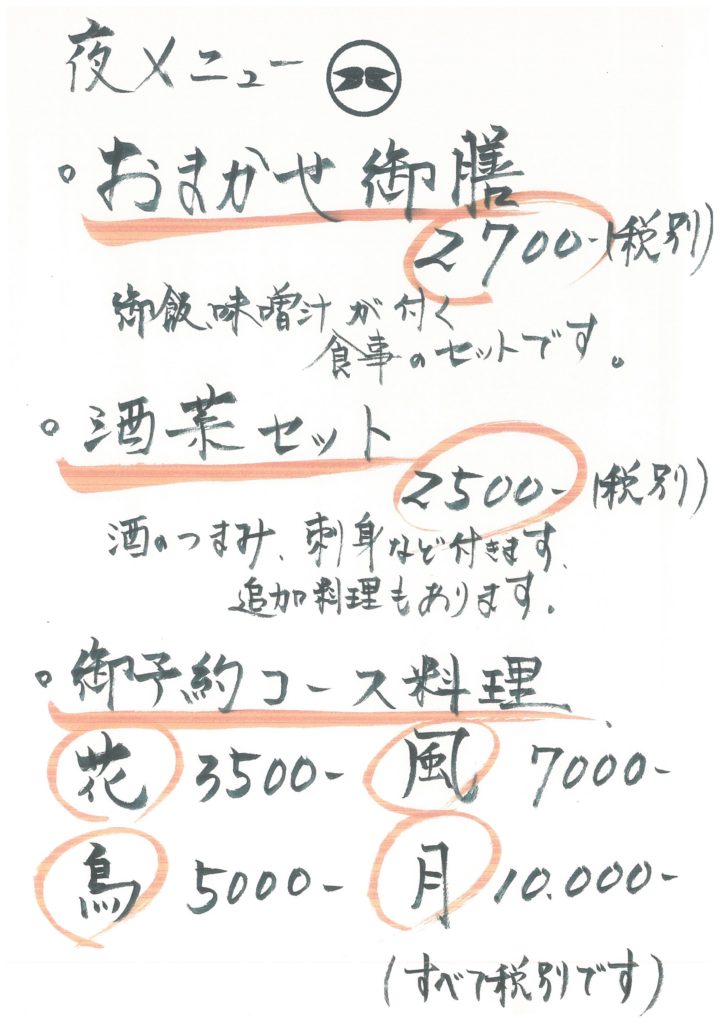 夜メニュー
。おまかせ御膳
2700-(税別)
御飯味噌汁が付く
食事のセットです。
。酒菜セット
2500-(税別)
酒のつまみ、刺身など付きます、
追加料理もあります。
。御予約コース料理
花 3500- 風 7000-
鳥 5000- 月 10.000-
(すべて税別です)